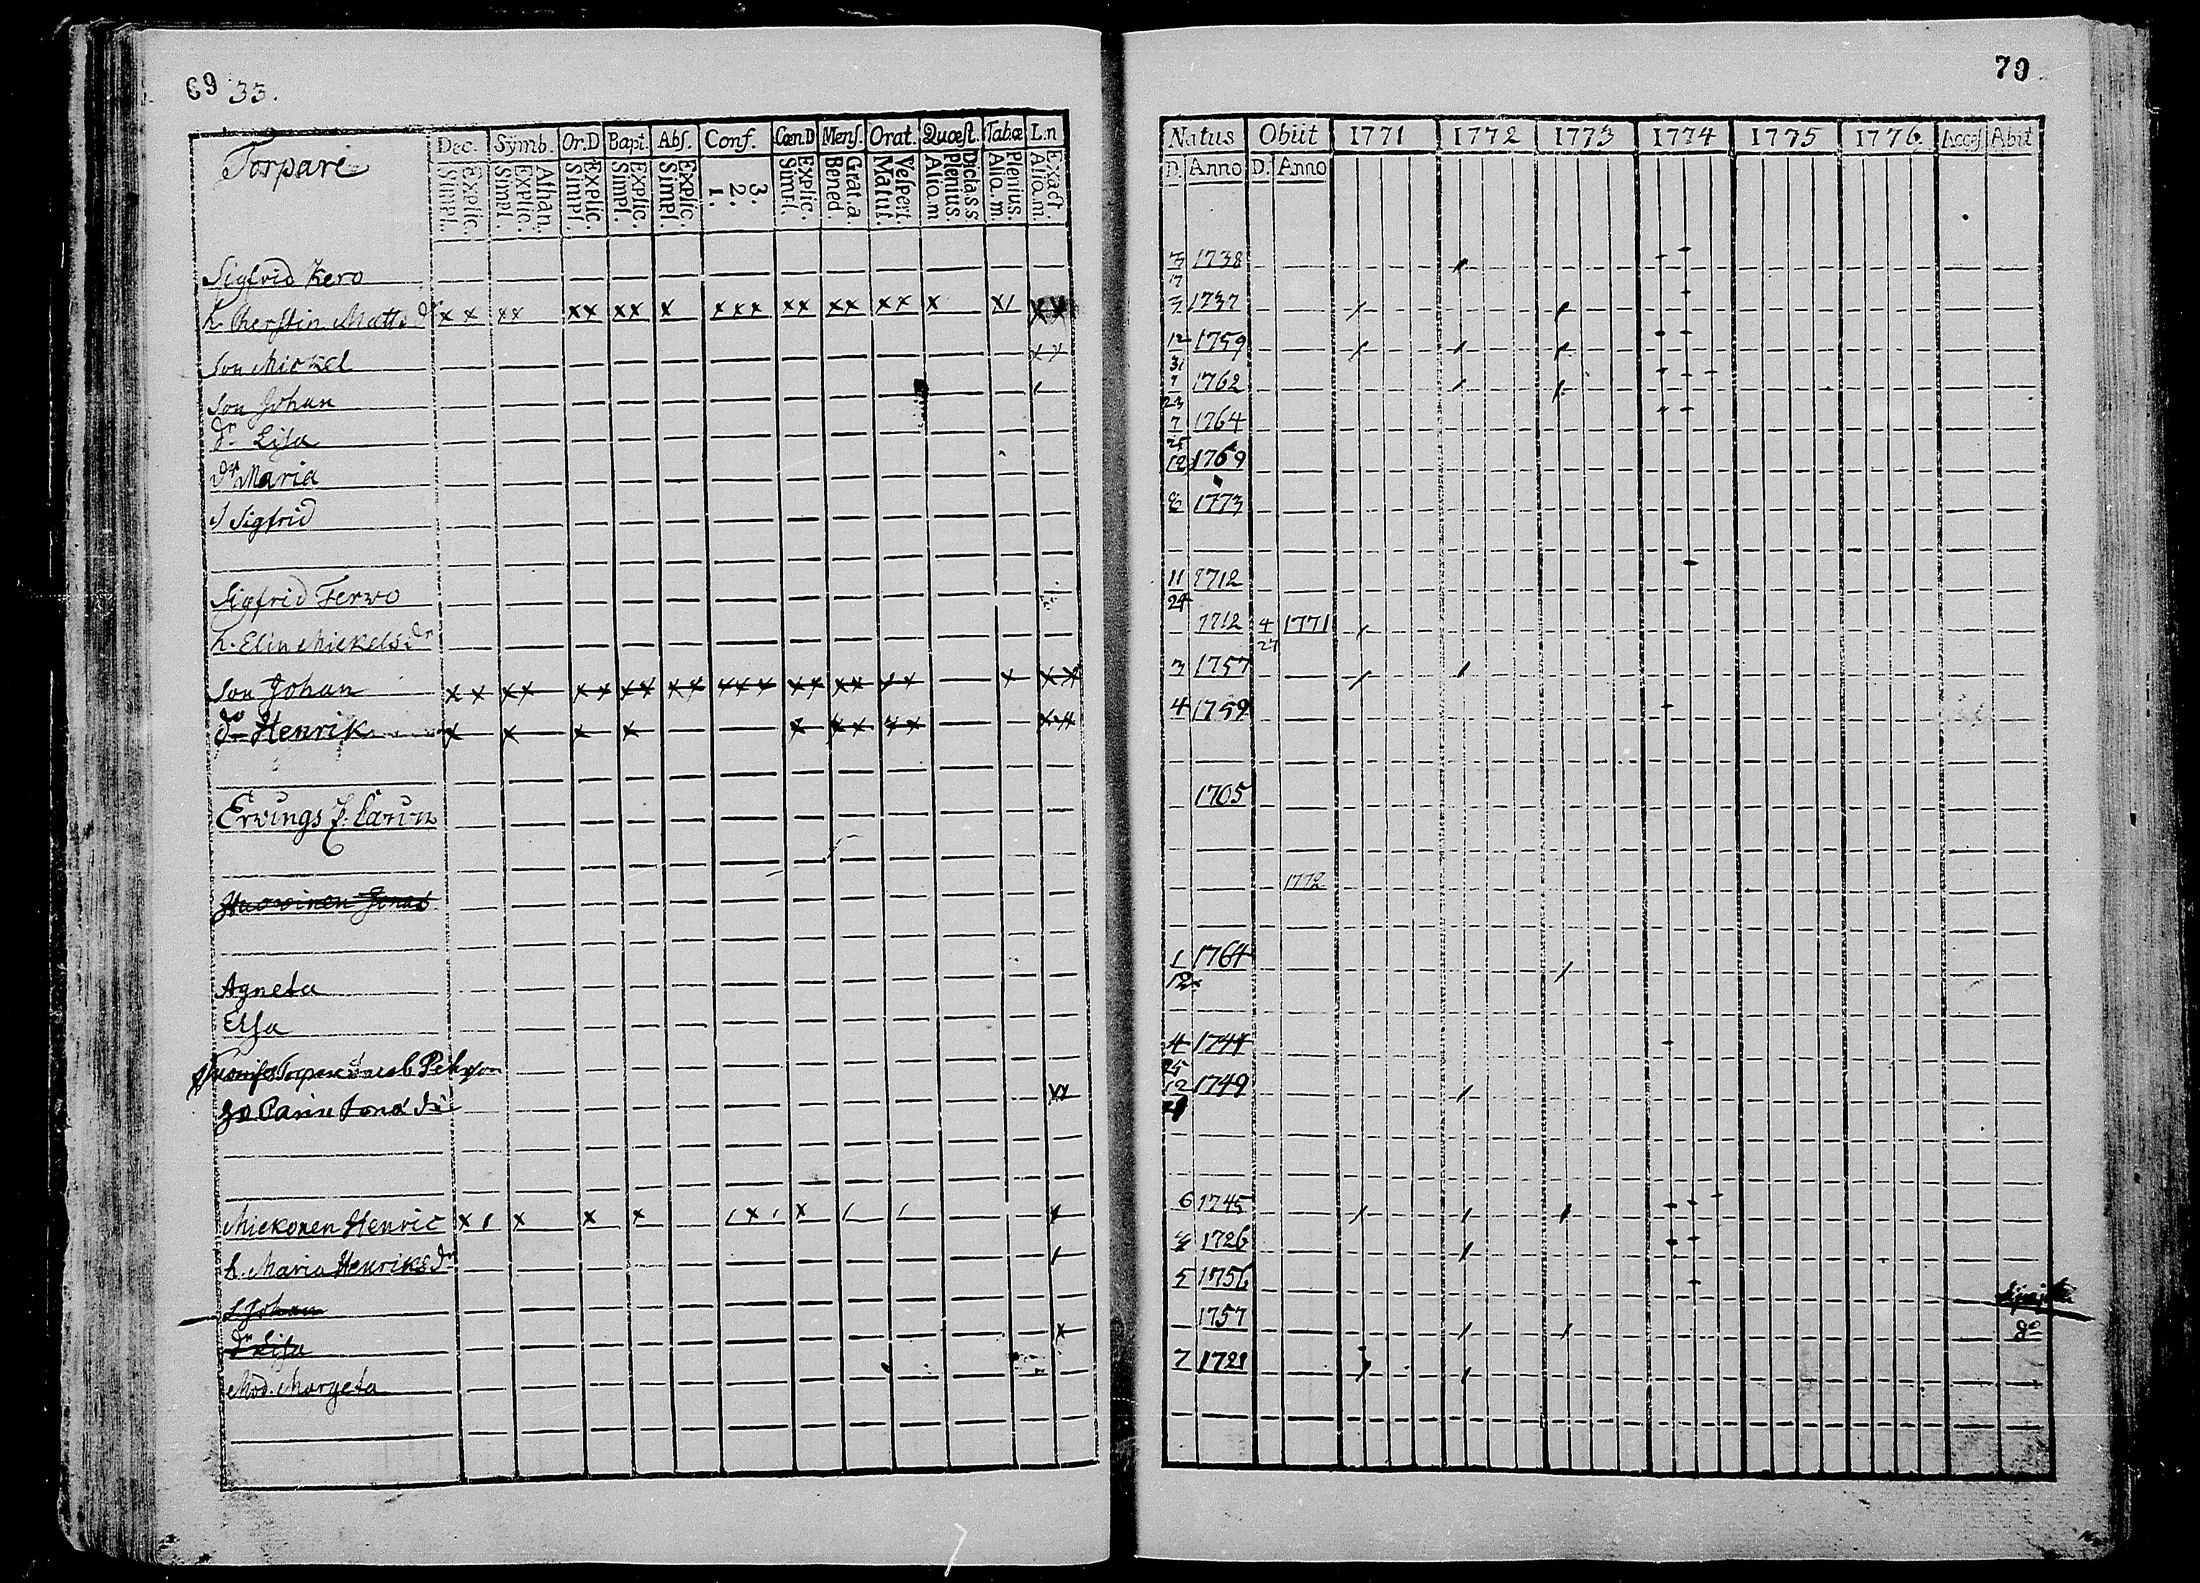 69 33.
Torpare
Dec. Symb. Or.D Bapt. Abs. Conf. Cœn.D Mens. Orat. Quœst. Tabœ L.n
Explic. Simpl. Athan. Explic. Simpl. Explic. Simpl. Explic. Simpl. Explic. Simpl. 3. 2. 1. Explic. Simpl. Grat.a Bened. Vespert. Matut. Dicla.s.s Plenius. Alio.m Plenius. Alio.m. Exact. Alio.m.
Sigfrid Kero
h. Kerstin Matts dr x x xx xx xx x x x x xx xx x x x x/ x x
Son Mickel x x
Son Johan /
dr Lisa
dr Maria
S Sigfrid
Sigfrid Ferwo
h. Elin Mickels dr
Son Johan x x xx xx xx xx xxx xx xx xx x x x
do Henrik x x x x x xx xx xxx
Ervings J. Carin
Huowinen Jonas
Agneta
Elsa
Torpare Jacob
Carin
Mickonen Henric x / x x x / x / x / / x
h. Maria Henriks dr /
S Johan
dr Lisa x
Mod. Margeta
70
Natus Obiit 1771 1772 1773 1774 1775 1776. Acces Abiit
D. Anno D. Anno
3 1738
7
3 1737
12 1759
31
1 1762
23
7 1764
25
12 1769
8 1773
11 1712
24
1712 4 1771
27
3 1757
4 1759
1705
1772
1 1764
12
4 1744
25
12 1749
6 1745
1726
5 1756
1757 do
7 1721